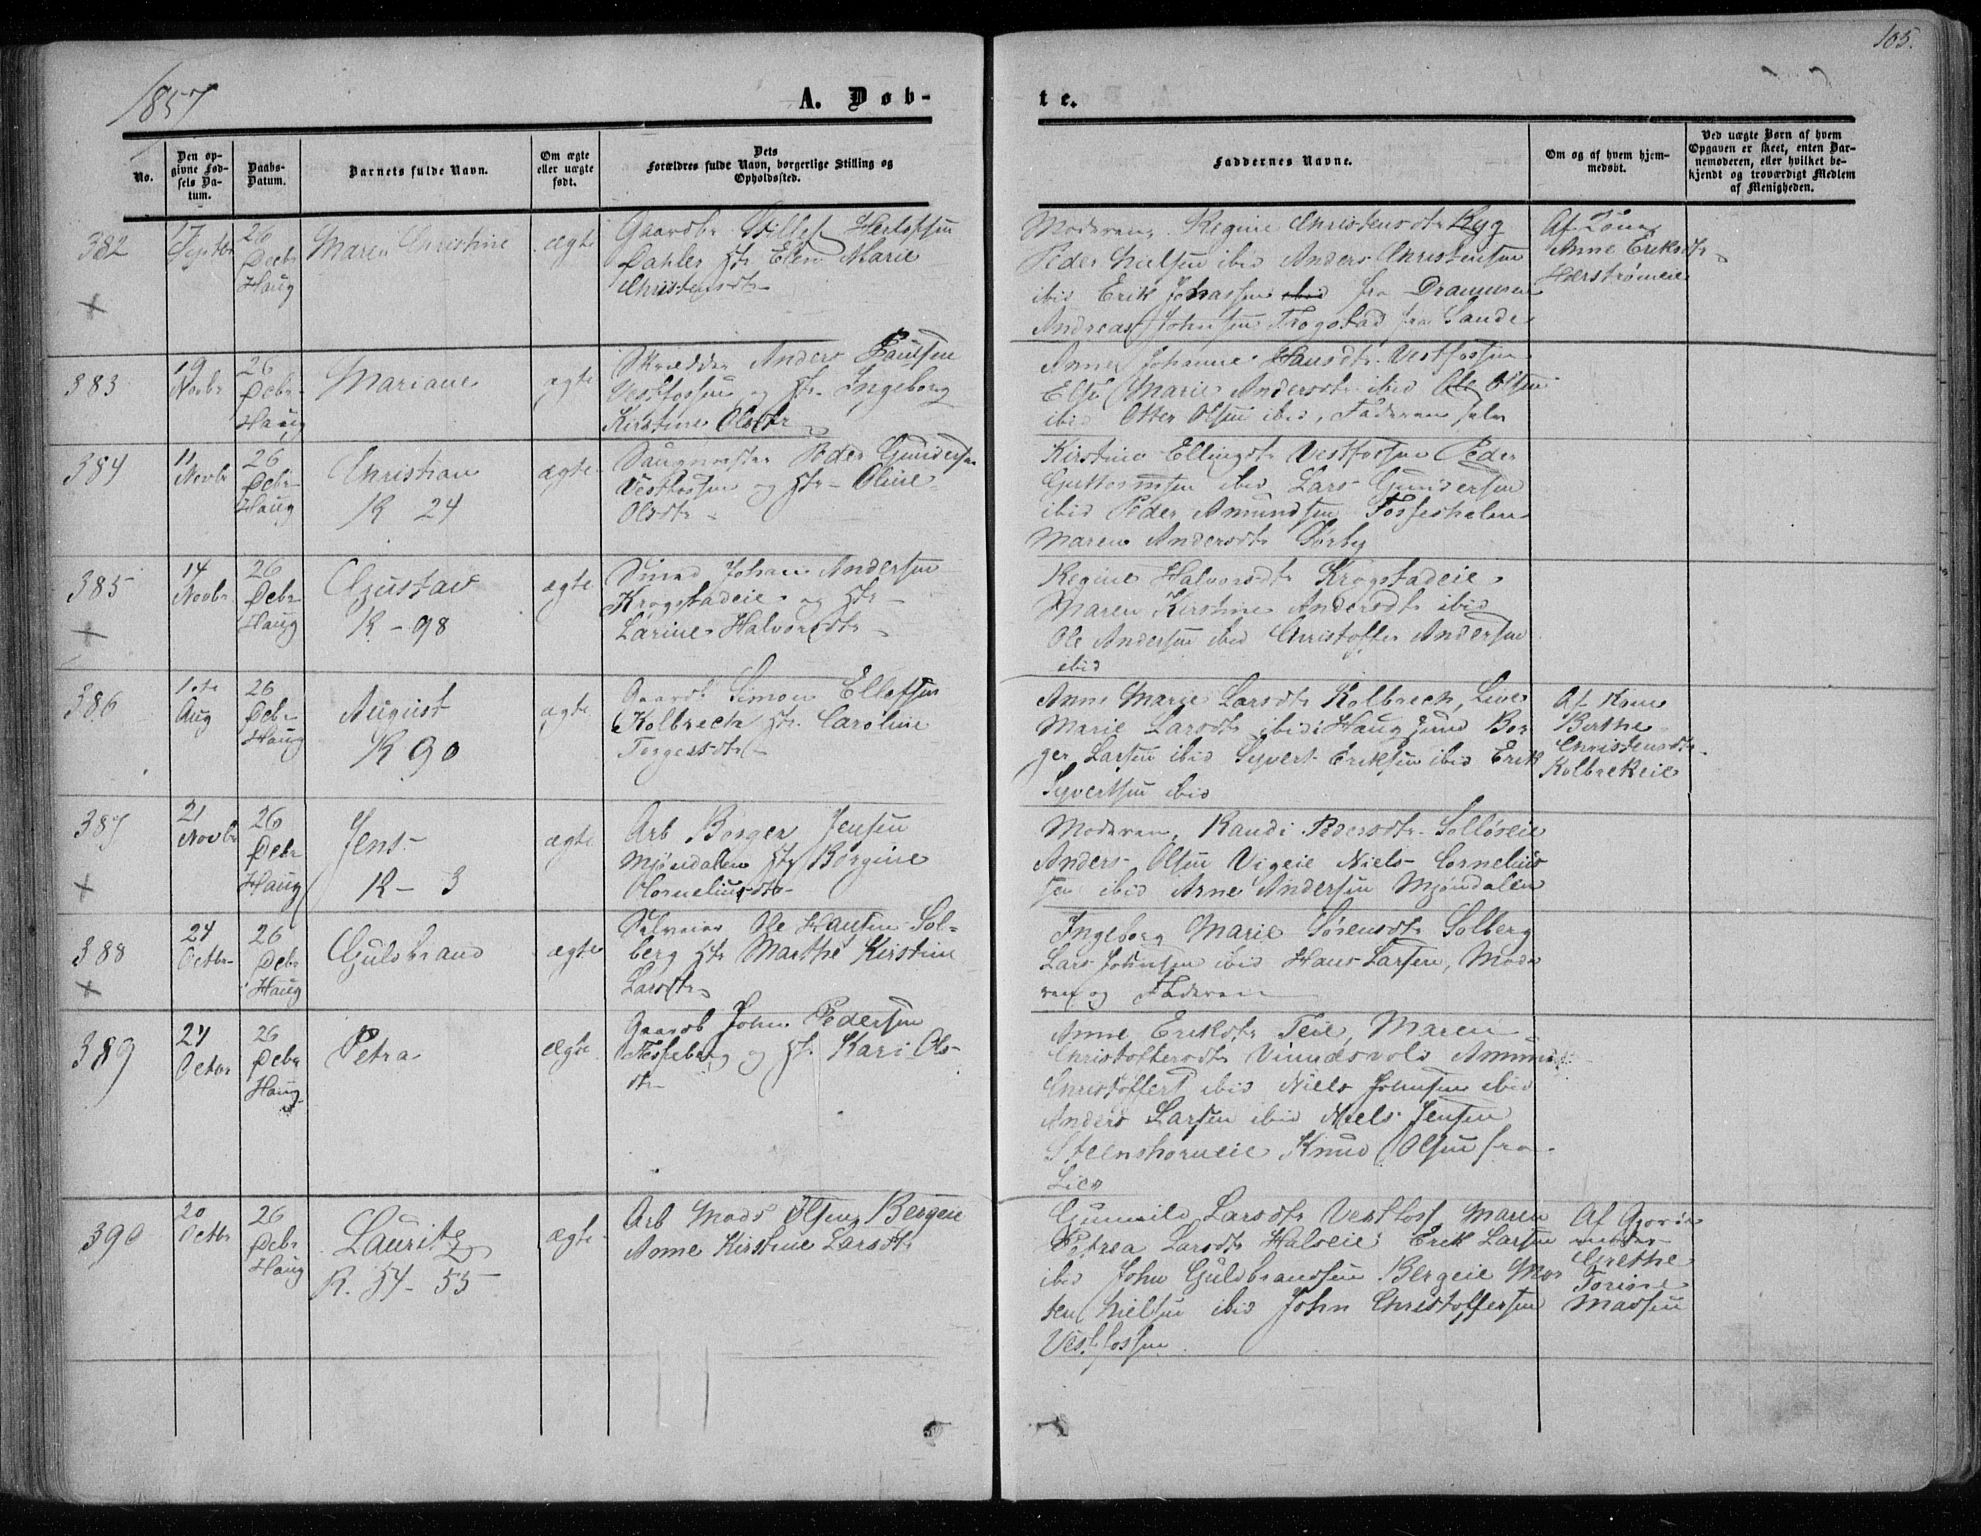 1857
A. Døb-
te.
105.
No.
Den op-
givne Fød-
sels Da-
tum.
Daabs-
Datum.
Barnets fulde Navn.
Om ægte
eller uægte
født.
Dets
Forældres fulde Navn, borgerlige Stilling og
Opholdssted.
Faddernes Navne.
Om og af hvem hjem-
medøbt.
Ved uægte Børn af hvem
Opgaven er skeet, enten Bar-
nemoderen, eller hvilket be-
kjendt og troværdigt Medlem
af Menigheden.
382
17
Septbr
26
Decbr
Haug
Maren Christine
ægte
Gaardbr
Dahler Hstr Elen Marie
Christensdtr
Moderen, Regine Christensdtr Ryg
Peder Nielsen ibid Anders Christensen
ibid Erik Johnssen ibid fra Drammen
Andreas Johnsen Frogstad fra Sande
Anne Eriksdtr
383
19
Novbr
26
Decbr
Haug
Mariane
ægte
Skrædder Anders Paulsen
Vestfossen og Hstr Ingeborg
Kirstine Olsdtr
Anne Johanne Hansdtr Vestfossen
Else Marie Andersdtr ibid Ole Olsen
ibid Otter Olsen ibid, Faderen selv
384
11
Novbr
26
Decbr
Haug
Christian
K 24
ægte
Saugmester Peder Gundersen
Vestfossen og Hstr Oline
Olsdtr
Kirstine Ellingsdtr Vestfossen Peder
Guttormsen ibid Lars Gundersen
ibid Peder Amundsen Fossesholm
Maren Andersdtr Sørby
385
14
Novbr
26
Decbr
Haug
Gustav
K - 98
ægte
Smed Johan Andersen
Krogstadeie og Hstr
Larine Halvorsdtr
Regine Halvorsdtr Krogstadeie
Maren Kirstine Andersdtr ibid
Ole Andersen ibid Christoffer Andersen
ibid
386
Aug
26
Decbr
Haug
August
K 90
ægte
Gaardb Simon Ellefsen
Kolbrech Hstr Caroline
Anne Marie Larsdtr Kolbrech, Live
Marie Larsdtr ibid Haugsund Bor
ger Larsen ibid Syvert Eriksen ibid Erik
Syvertsen ibid
Berthe
Christensdtr
Kolbrekeie
387
21
Novbr
26
Decbr
Haug
Jens
K - 3
ægte
Arb Borger Jensen
Mjøndalen Hstr Borgine
Corneliusdtr
Moderen, Randi Pedersdtr Solløseie
Anders Olsen Vigeie Niels Cornelius
sen ibid Arne Andersen Mjøndalen
388
24
Octbr
26
Decbr
Haug
Gulbrand
ægte
Selveier Ole Hansen Sol-
berg Hstr Marthe Kirstine
Larsdtr
Ingeborg Marie Sørensdtr Solberg
Lars Johnsen ibid Hans Larsen, Mode
ren og Faderen
389
24
Octbr
26
Decbr
Haug
Petra
ægte
Gaardb John Pedersen
og Hstr Kari Ols-
dtr
Anne Eriksdtr Teie, Maren
Christoffersdtr Amund
Christoffers ibid Niels Johnsen ibid
Anders Larsen ibid Niels Jensen
Steenshorneie Knud Olsen fra
Lier
390
20
Octbr
26
Decbr
Haug
Lauritz
K. 54 - 55
ægte
Arb Mads Olsen Bergeie
Anne Kirstine Larsdtr
Gunnild Larsdtr Vestfoss Maren
Petrea Larsdtr Halseie Erik Larsen
ibid John Gulbrandsen Bergeie Mor
ten Nielsen ibid John Christoffersen
Vestfossen
Af Gjorde
moder
Grethe
Torine
Madsen